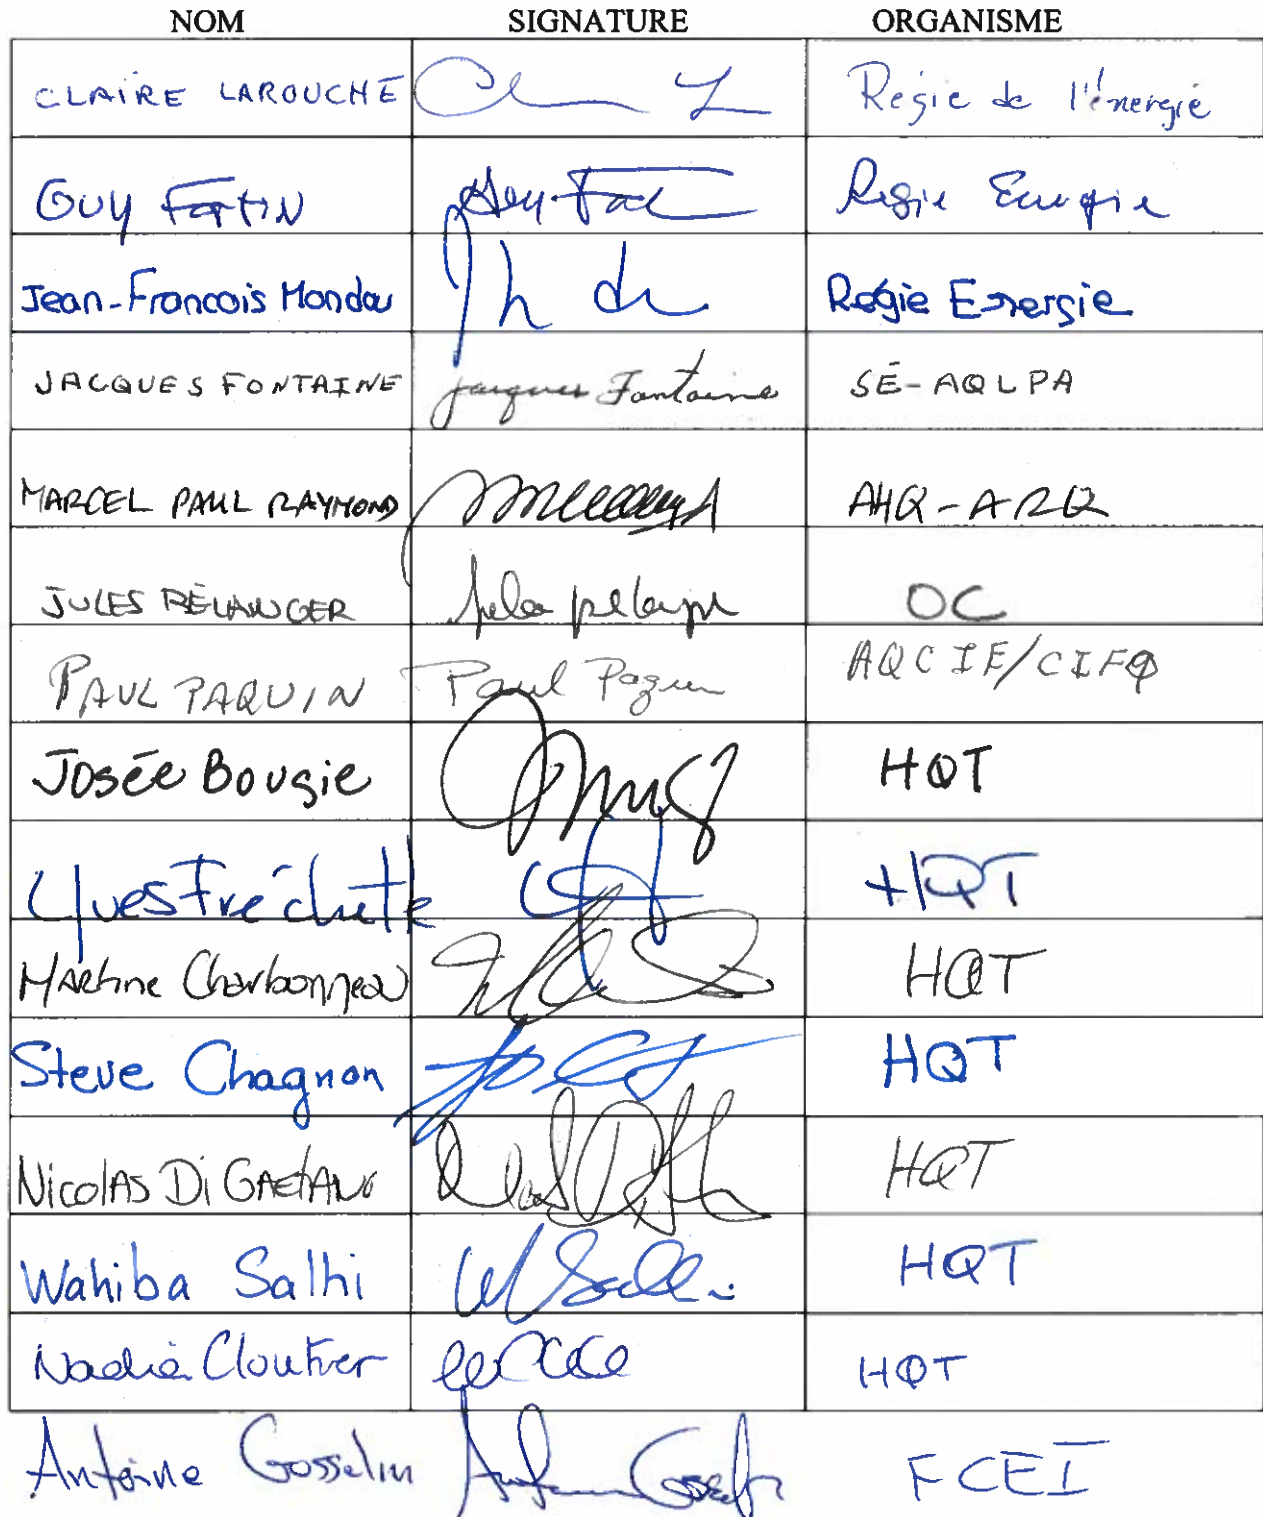 NOM SIGNATURE ORGANISME
CLAIRE LAROUCHE Régie de l'énergie
GUY FORTIN Régie Énergie
Jean-Francois Mondou Régie Energie
JACQUES FONTAINE Jacques Fontaine SÉ-AQLPA
MARCEL PAUL RAYMOND AHQ-ARQ
JULES BÉLANGER OC
PAUL PAQUIN Paul Paquin AQCIE/CIFQ
Josée Bougie HQT
Yves Fréchette HQT
Martine Charbonneau HQT
Steve Chagnon HQT
Nicolas Di Gaetano HQT
Wahiba Salhi W Salhi HQT
Nadia Cloutier HQT
Antoine Gosselin FCEI